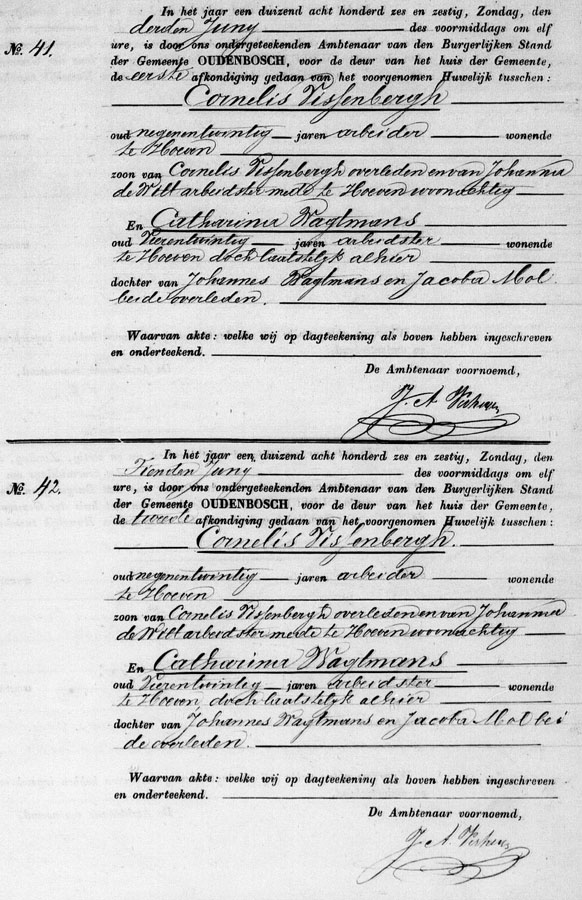 In het jaar een duizend acht honderd zes en zestig, Zondag, den
derden Juny des voormiddags om elf
No. 41.
ure, is door ons ondergeteekenden Ambtenaar van den Burgerlijken Stand
der Gemeente OUDENBOSCH, voor de deur van het huis der Gemeente,
de eerste afkondiging gedaan van het voorgenomen Huwelijk tusschen:
Cornelis Vissenbergh
oud negenentwintig jaren arbeider wonende
te Hoeven
zoon van Cornelis Vissenbergh overleden en van Johanna
de Witt arbeidster mede te Hoeven woonachtig
En Catharina Wagtmans
oud Vierentwintig jaren arbeidster wonende
te Hoeven doch laatstelijk alhier
dochter van Johannes Wagtmans en Jacoba Mol
beide overleden.
Waarvan akte: welke wij op dagteekening als boven hebben ingeschreven
en onderteekend.
De Ambtenaar voornoemd,
J. A.
In het jaar een duizend acht honderd zes en zestig, Zondag, den
Tienden Juny des voormiddags om elf
No. 42.
ure, is door ons ondergeteekenden Ambtenaar van den Burgerlijken Stand
der Gemeente OUDENBOSCH, voor de deur van het huis der Gemeente,
de tweede afkondiging gedaan van het voorgenomen Huwelijk tusschen:
Cornelis Vissenbergh.
oud negenentwintig jaren arbeider wonende
te Hoeven
zoon van Cornelis Vissenbergh overleden en van Johanna
de Witt arbeidster mede te Hoeven woonachtig
En Catharina Wagtmans
oud Vierentwintig jaren arbeidster wonende
te Hoeven doch laatstelijk alhier
dochter van Johannes Wagtmans en Jacoba Mol bei
de overleden.
Waarvan akte: welke wij op dagteekening als boven hebben ingeschreven
en onderteekend.
De Ambtenaar voornoemd,
J. A.